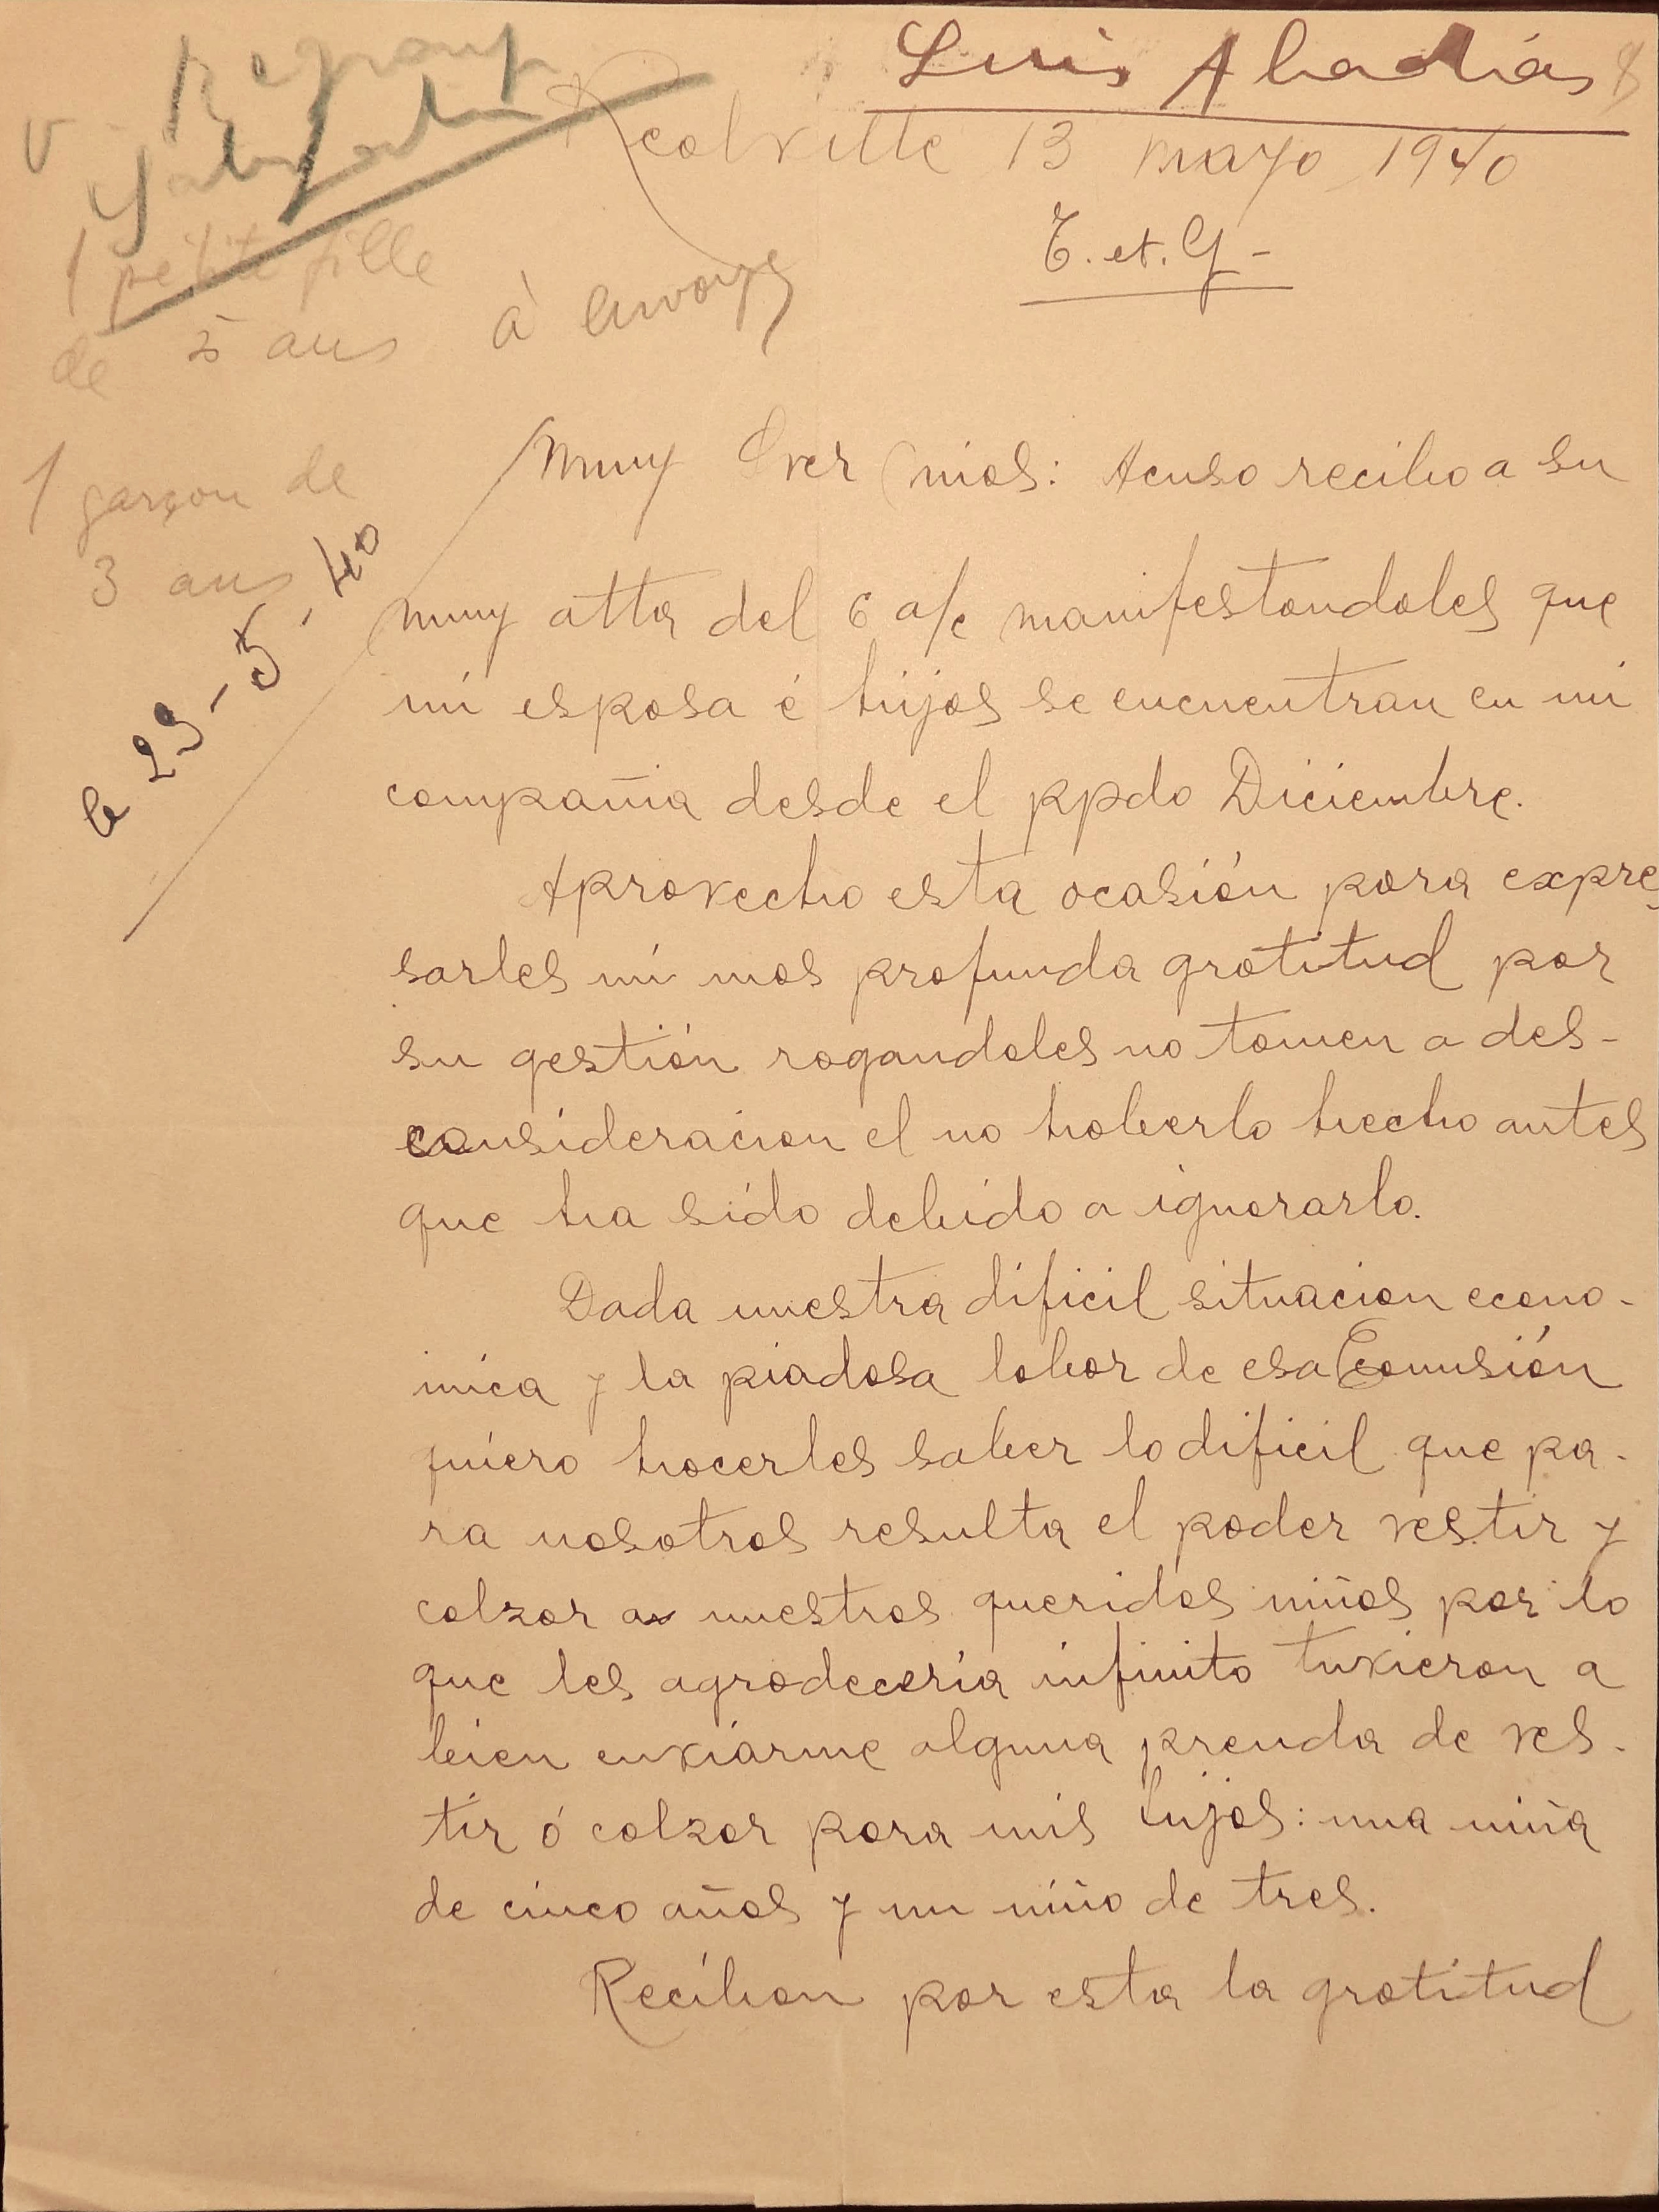 Luis Abadías
Realville 13 mayo 1940
T. et. G -
1 petite fille
de 5 ans à envoyer
1 garçon de
3 ans
le 29-5-40
Muy Sres mios: Acuso recibo a su
muy atta del 6 a/c manifestandoles que
mi esposa é hijos se encuentran en mi
compañia desde el ppdo Diciembre.
Aprovecho esta ocasión para expre-
sarles mi mas profunda gratitud por
su gestión rogandoles no tomen a des-
consideracion el no haberlo hecho antes
que ha sido debido a ignorarlo.
Dada nuestra dificil situacion econo-
mica y la piadosa labor de esa Comisión
quiero hacerles saber lo dificil que pa-
ra nosotros resulta el poder vestir y
calzar a nuestros queridos niños por lo
que les agradeceria infinito tuvieran a
bien enviarme alguna prenda de ves-
tir ó calzar para mis hijos: una niña
de cinco años y un niño de tres.
Reciban por esta la gratitud